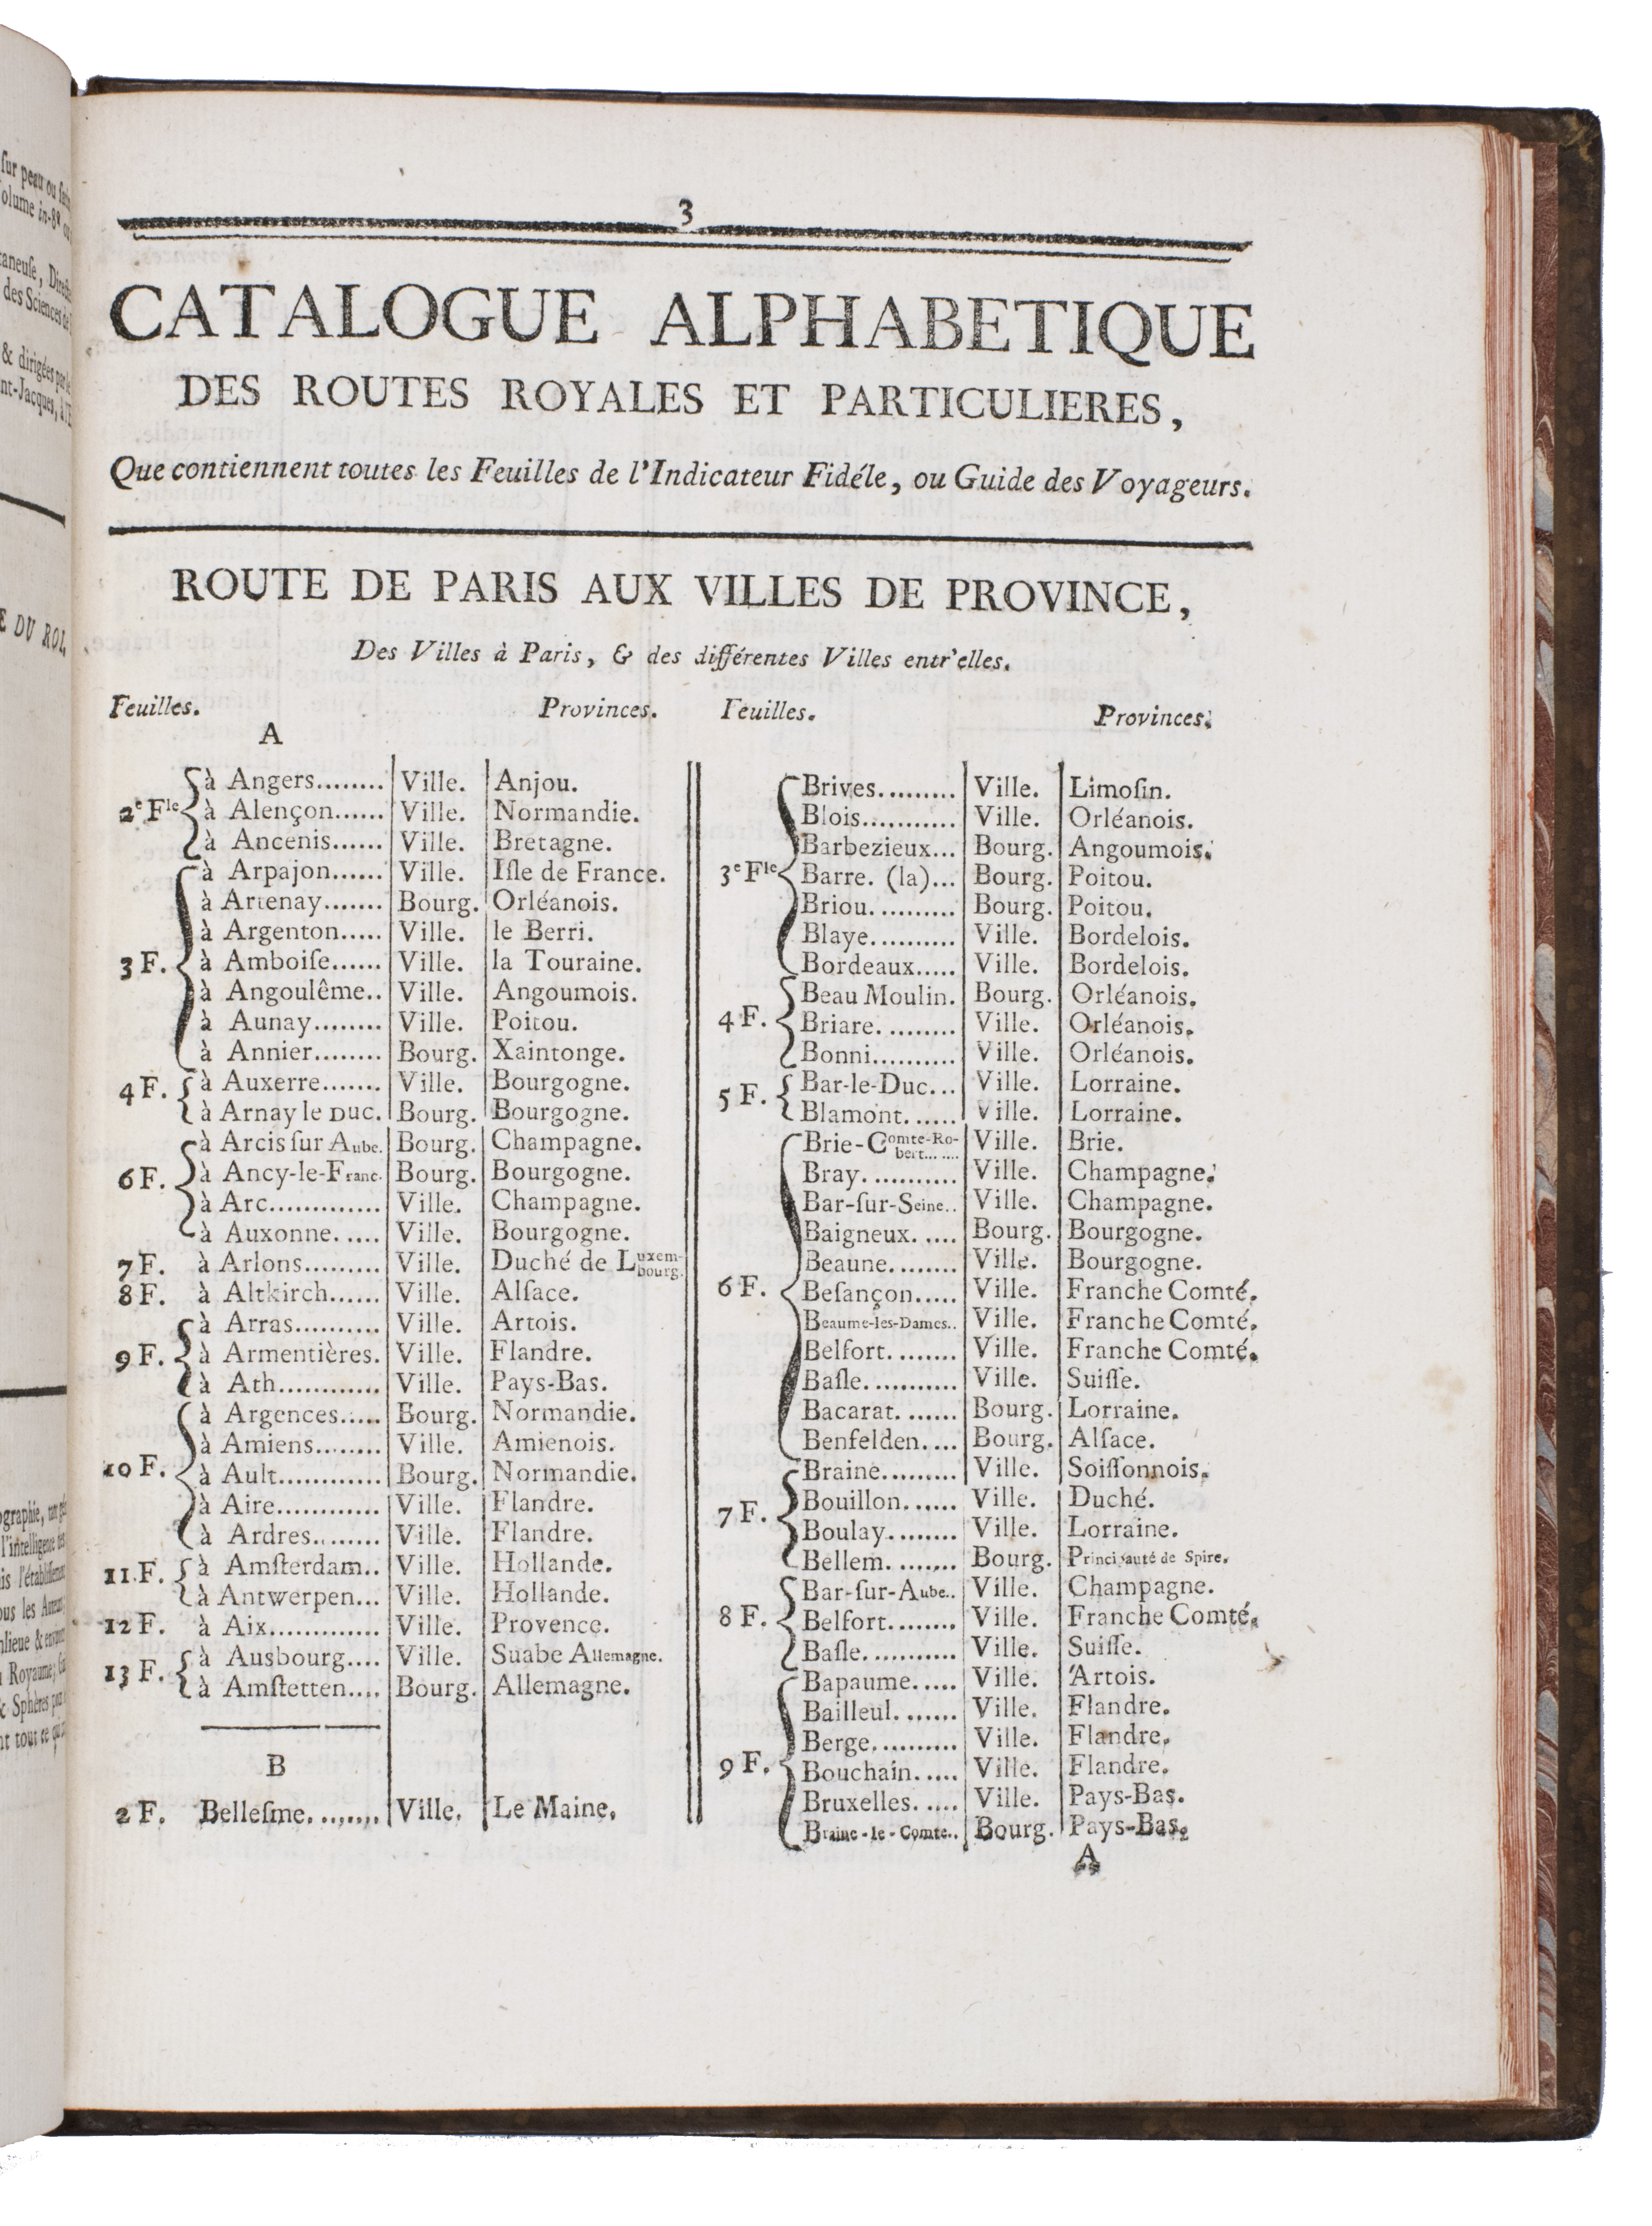 ſur peau ou
olume in-8°
caneuſe,
des Sciences de
& dirigées
nt-Jacques, à l'
E DU ROI,
ographie,
l'intelligence
ous les
Royaume;
& Sphères
nt tout ce qui
3
CATALOGUE ALPHABETIQUE
DES ROUTES ROYALES ET PARTICULIERES,
Que contiennent toutes les Feuilles de l'Indicateur Fidéle, ou Guide des Voyageurs.
ROUTE DE PARIS AUX VILLES DE PROVINCE,
Des Villes à Paris, & des différentes Villes entr'elles.
Feuilles. Provinces.
A
à Angers........ Ville. Anjou.
2e Fle à Alençon...... Ville. Normandie.
à Ancenis...... Ville. Bretagne.
à Arpajon...... Ville. Iſle de France.
à Artenay....... Bourg. Orléanois.
à Argenton..... Ville. le Berri.
3 F. à Amboiſe...... Ville. la Touraine.
à Angoulême.. Ville. Angoumois.
à Aunay........ Ville. Poitou.
à Annier........ Bourg. Xaintonge.
4 F. à Auxerre....... Ville. Bourgogne.
à Arnay le Duc. Bourg. Bourgogne.
à Arcis ſur Aube. Bourg. Champagne.
6 F. à Ancy-le-Franc. Bourg. Bourgogne.
à Arc............. Ville. Champagne.
à Auxonne. .... Ville. Bourgogne.
7 F. à Arlons......... Ville. Duché de Luxem-
bourg.
8 F. à Altkirch...... Ville. Alſace.
à Arras.......... Ville. Artois.
9 F. à Armentières. Ville. Flandre.
à Ath............ Ville. Pays-Bas.
à Argences..... Bourg. Normandie.
à Amiens........ Ville. Amienois.
10 F. à Ault............ Bourg. Normandie.
à Aire............ Ville. Flandre.
à Ardres......... Ville. Flandre.
11 F. à Amſterdam.. Ville. Hollande.
à Antwerpen... Ville. Hollande.
12 F. à Aix............. Ville. Provence.
13 F. à Ausbourg.... Ville. Suabe Allemagne.
à Amſtetten.... Bourg. Allemagne.
B
2 F. Belleſme. ....... Ville. Le Maine.
Feuilles. Provinces.
Brives.......... Ville. Limoſin.
Blois........... Ville. Orléanois.
Barbezieux... Bourg. Angoumois.
3e Fle Barre. (la)... Bourg. Poitou.
Briou. ......... Bourg. Poitou.
Blaye.......... Ville. Bordelois.
Bordeaux..... Ville. Bordelois.
Beau Moulin. Bourg. Orléanois.
4 F. Briare. ........ Ville. Orléanois.
Bonni.......... Ville. Orléanois.
5 F. Bar-le-Duc... Ville. Lorraine.
Blamont. ..... Ville. Lorraine.
Brie-Comte-Ro-
bert....... Ville. Brie.
Bray. .......... Ville. Champagne.
Bar-ſur-Seine.. Ville. Champagne.
Baigneux. .... Bourg. Bourgogne.
Beaune........ Ville. Bourgogne.
6 F. Beſançon..... Ville. Franche Comté.
Beaume-les-Dames.. Ville. Franche Comté.
Belfort. ....... Ville. Franche Comté.
Baſle. .......... Ville. Suiſſe.
Bacarat. ...... Bourg. Lorraine.
Benfelden. ... Bourg. Alſace.
Braine......... Ville. Soiſſonnois.
7 F. Bouillon. ..... Ville. Duché.
Boulay......... Ville. Lorraine.
Bellem. ....... Bourg. Principauté de Spire.
Bar-ſur-Aube.. Ville. Champagne.
8 F. Belfort......... Ville. Franche Comté.
Baſle. .......... Ville. Suiſſe.
Bapaume. .... Ville. Artois.
Bailleul. ...... Ville. Flandre.
Berge.......... Ville. Flandre.
9 F. Bouchain. .... Ville. Flandre.
Bruxelles. .... Ville. Pays-Bas.
Braine-le-Comte.. Bourg. Pays-Bas.
A